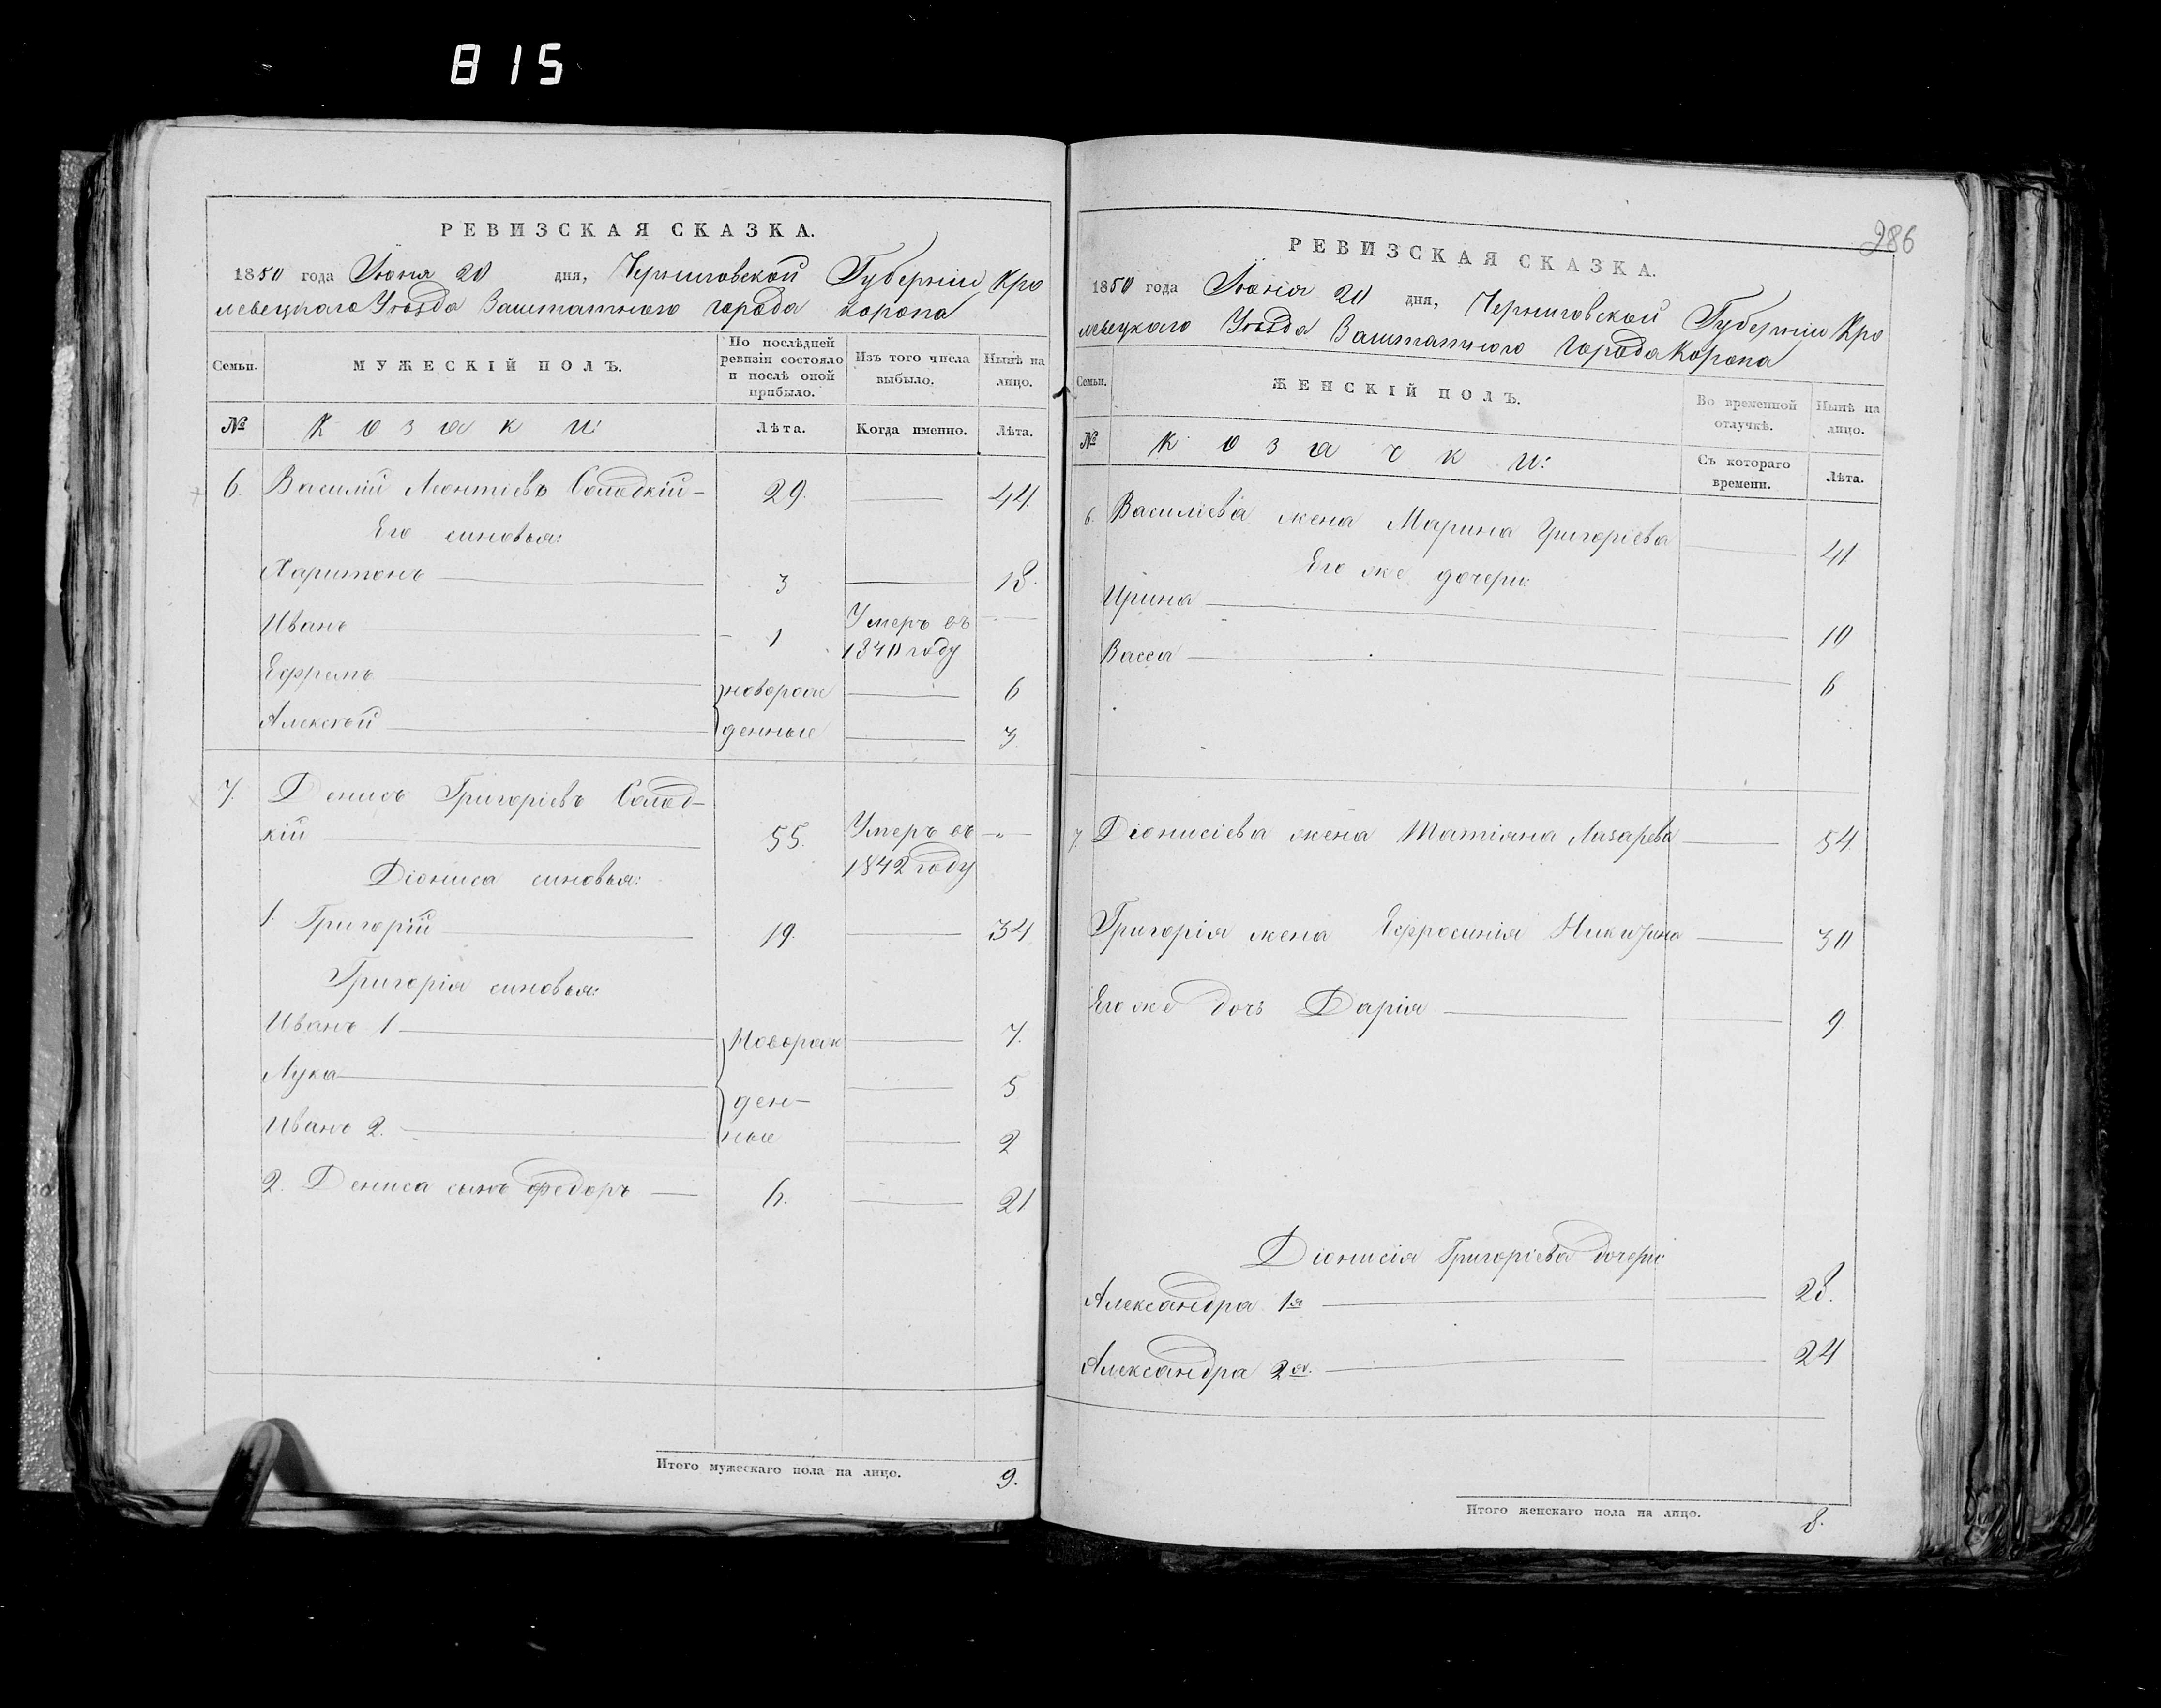 815
РЕВИЗСКАЯ СКАЗКА.
1850 года Іюня 20 дня, Черниговской Губерніи Кро
левецкаго Уѣзда Заштатного города Коропа
Семьи. МУЖЕСКІЙ ПОЛЪ. По послѣдней ревизіи состояло и послѣ оной прибыло. Изъ того числа выбыло. Нынѣ на лицо.
№ Козаки: Лѣта. Когда именно. Лѣта.
6. Василій Леонтіевъ Солодкій 29. 44.
Его синовья:
Харитонъ 3 18.
Иванъ 1 Умеръ въ
1840 году
Ефремъ новорож 6
Алексѣй денные 3.
7. Денисъ Григоріевъ Солод-
кій 55. Умеръ въ
1842 году
Діониса синовья:
1. Григорій 19. 34
Григорія синовья:
Иванъ 1 Новорож 7.
Лука ден- 5
Иванъ 2. ные 2
2. Дениса сынъ Федоръ 6. 21
Итого мужескаго пола на лицо. 9.
286
РЕВИЗСКАЯ СКАЗКА.
1850 года Іюнія 20 дня, Черниговской Губерніи Кро
левецкаго Уѣзда Заштатного города Коропа
Семьи. ЖЕНСКІЙ ПОЛЪ. Во временной отлучкѣ. Нынѣ на лицо.
№ Козачки: Съ котораго времени. Лѣта.
6. Василіева жена Марина Григоріева 41
Его же дочери
Ирина 10
Васса 6
7. Діонисіева жена Татіяна Лазарева 54.
Григорія жена Ефросинія Никитина 30
Его же дочь Дарія 9
Діонисія Григоріева дочери
Александра 1я 28.
Александра 2я. 24
Итого женскаго пола на лицо. 8.